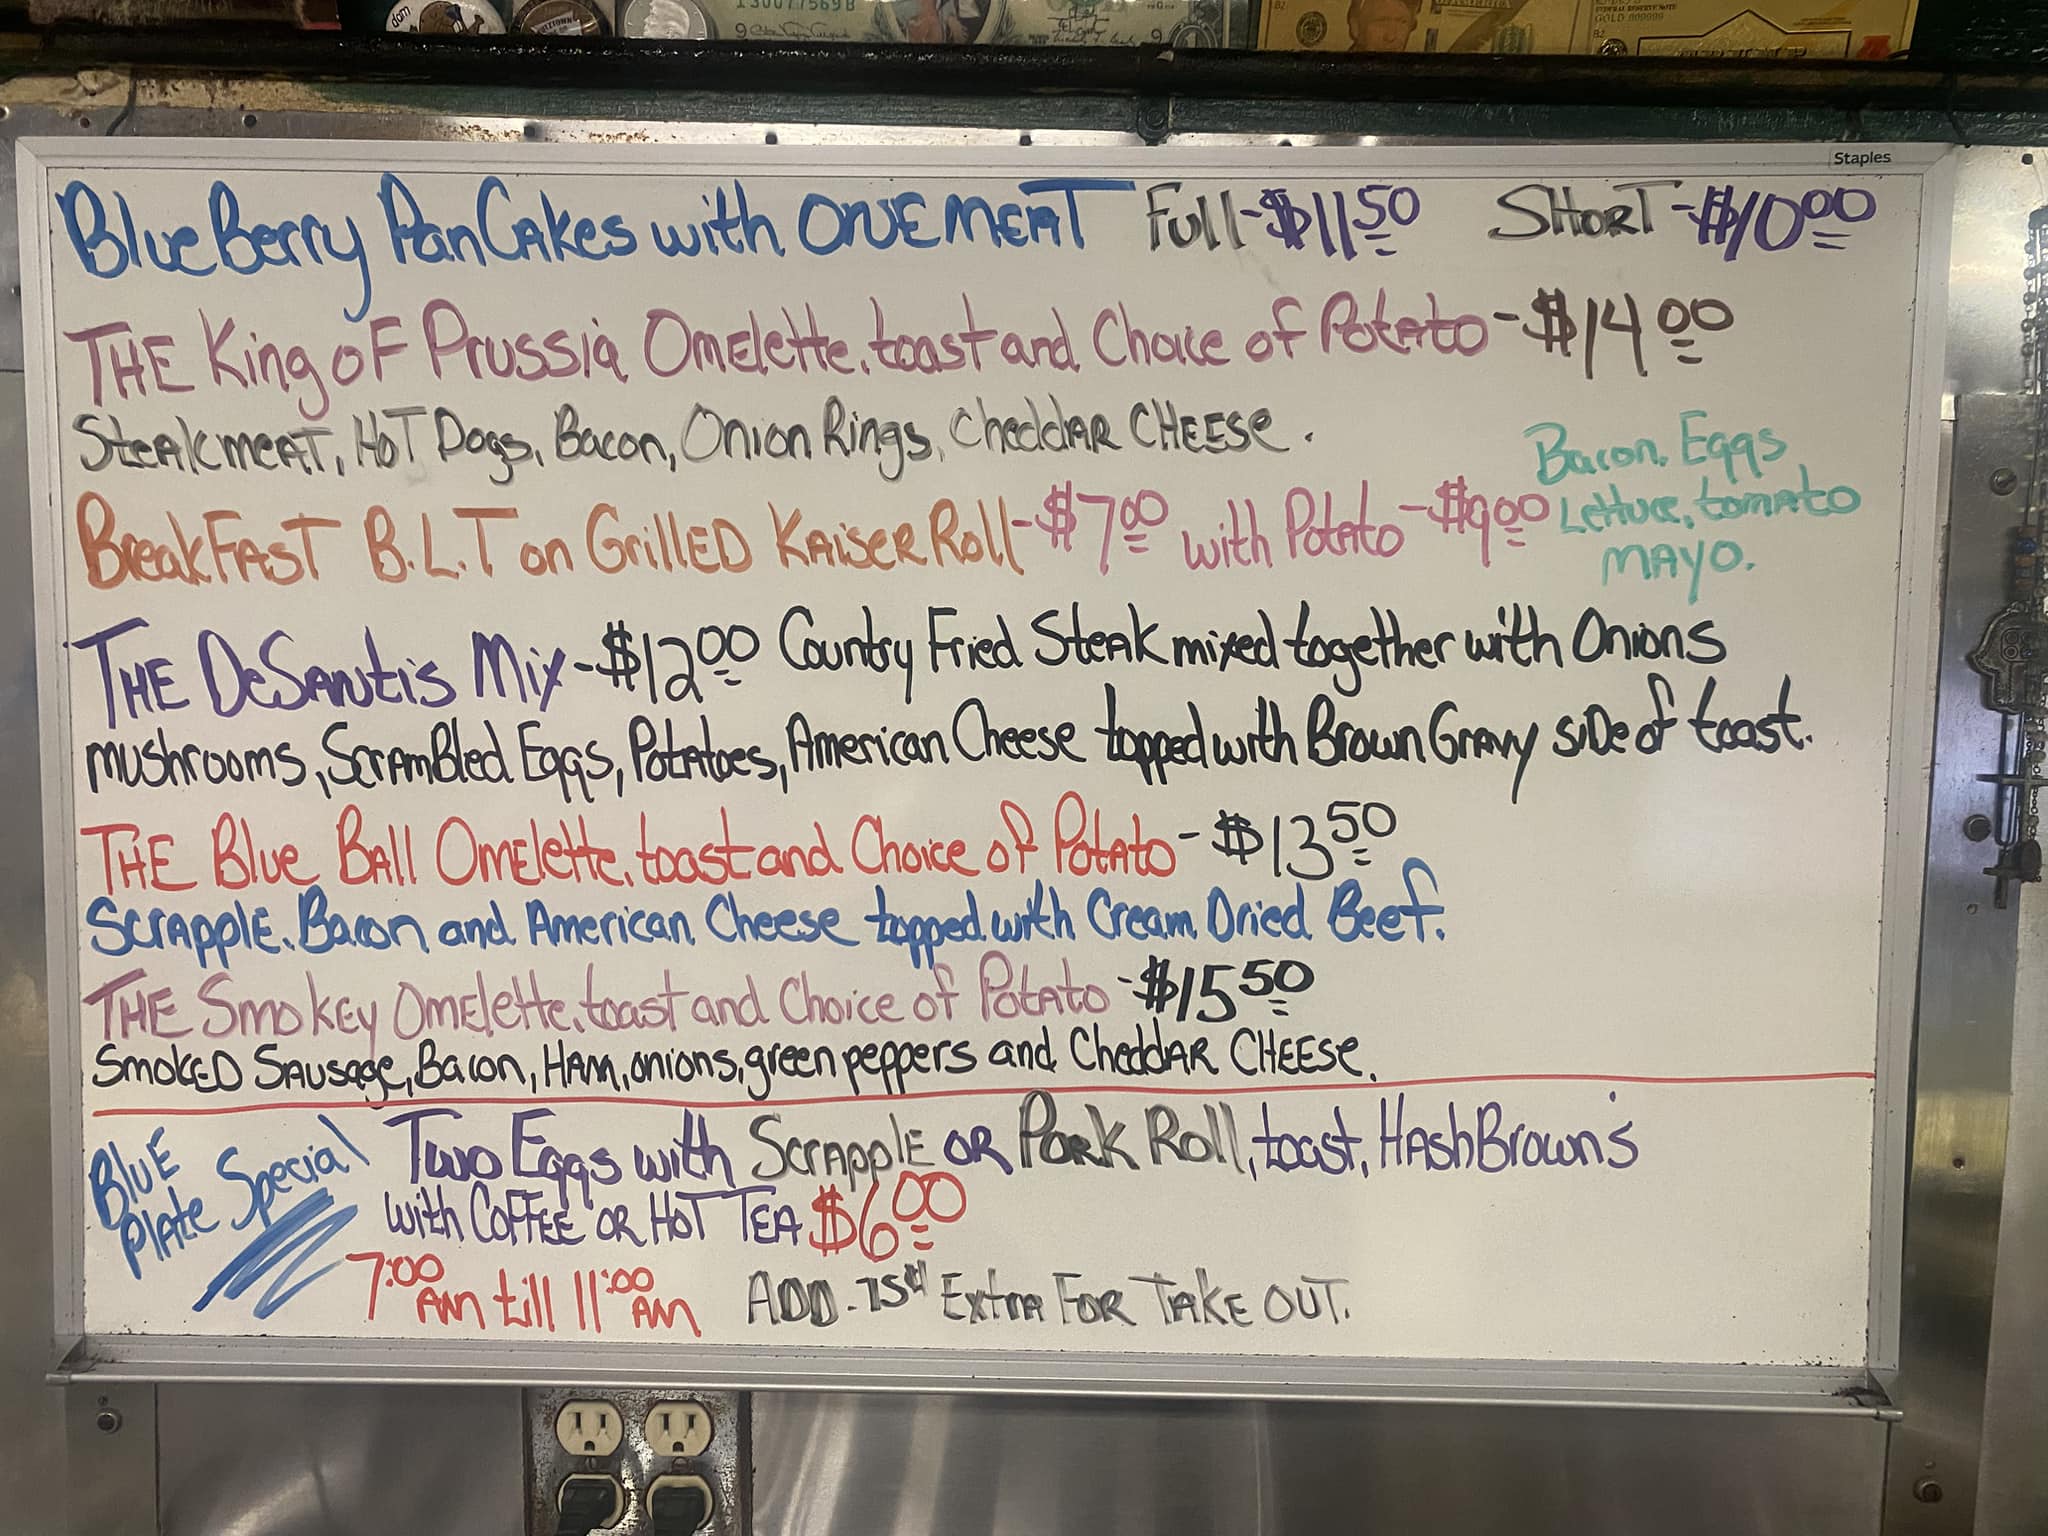 dam
13007569B
GOLD 999999
Staples
BlueBerry PanCakes with ONE MEAT Full-$11.50 SHORT-$10.00
THE King OF Prussia Omelette, toast and Choice of Potato-$14.00
Steakmeat, HOT Dogs, Bacon, Onion Rings, Cheddar CHEESE.
Bacon, Eggs
Lettuce, tomato
MAYO.
BreakFAST B.L.T on GrillED KAiSER Roll-$7.00 with Potato-$9.00
THE DeSantis Mix-$12.00 Country Fried Steak mixed together with Onions
mushrooms, Scrambled Eggs, Potatoes, American Cheese topped with Brown Gravy side of toast.
THE Blue Ball Omelette, toast and Choice of Potato-$13.50
Scrapple, Bacon and American Cheese topped with Cream Dried Beef.
THE Smokey Omelette, toast and Choice of Potato-$15.50
Smoked Sausage, Bacon, Ham, onions, green peppers and Cheddar CHEESE.
BluE PlAte Special
Two Eggs with Scrapple OR Pork Roll, toast, HashBrown's
with COFFEE OR HOT TEA $6.00
7:00 AM till 11:00 AM ADD .75¢ Extra FOR TAKE OUT.